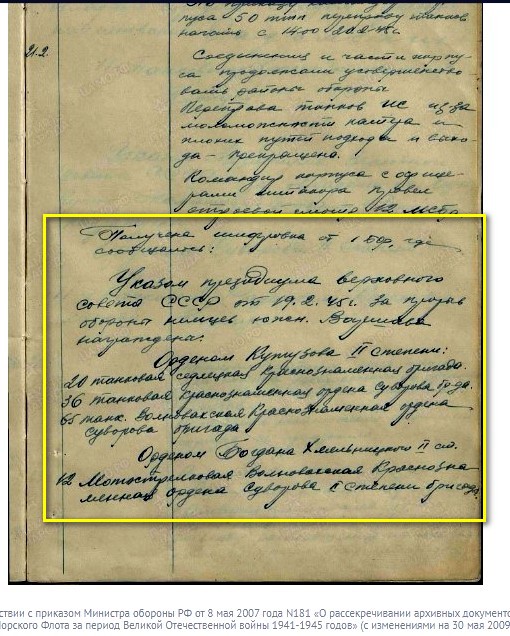 пуса 50 тпп переправу танков
начать с 14.00 22.2.45г.
21.2.
Соединения и части корпу-
са продолжали усовершенство-
вать районы обороны
Переправа танков ИС из-за
маломощности катера и
плохих путей подхода и выхо-
да - прекращена.
Командир корпуса с офице-
рами штакора провел
строевой смотр 12 МСБр
Получена шифровка от 1 БФ, где
сообщалось:
Указом президиума верховного
совета СССР от 19.2.45г. за прорыв
обороны немцев южн. Варшава
награждена:
Орденом Кутузова II степени:
20 танковая седлецкая Краснознаменная бригада.
36 танковая Краснознаменная ордена Суворова бр-да.
65 танк. Волновахская Краснознаменная ордена
Суворова бригада
Орденом Богдана Хмельницкого II ст.
12 Мотострелковая Волновахская Краснозна
менная ордена Суворова II степени бригада
ствии с приказом Министра обороны РФ от 8 мая 2007 года N181 «О рассекречивании архивных документо
Морского Флота за период Великой Отечественной войны 1941-1945 годов» (с изменениями на 30 мая 2009